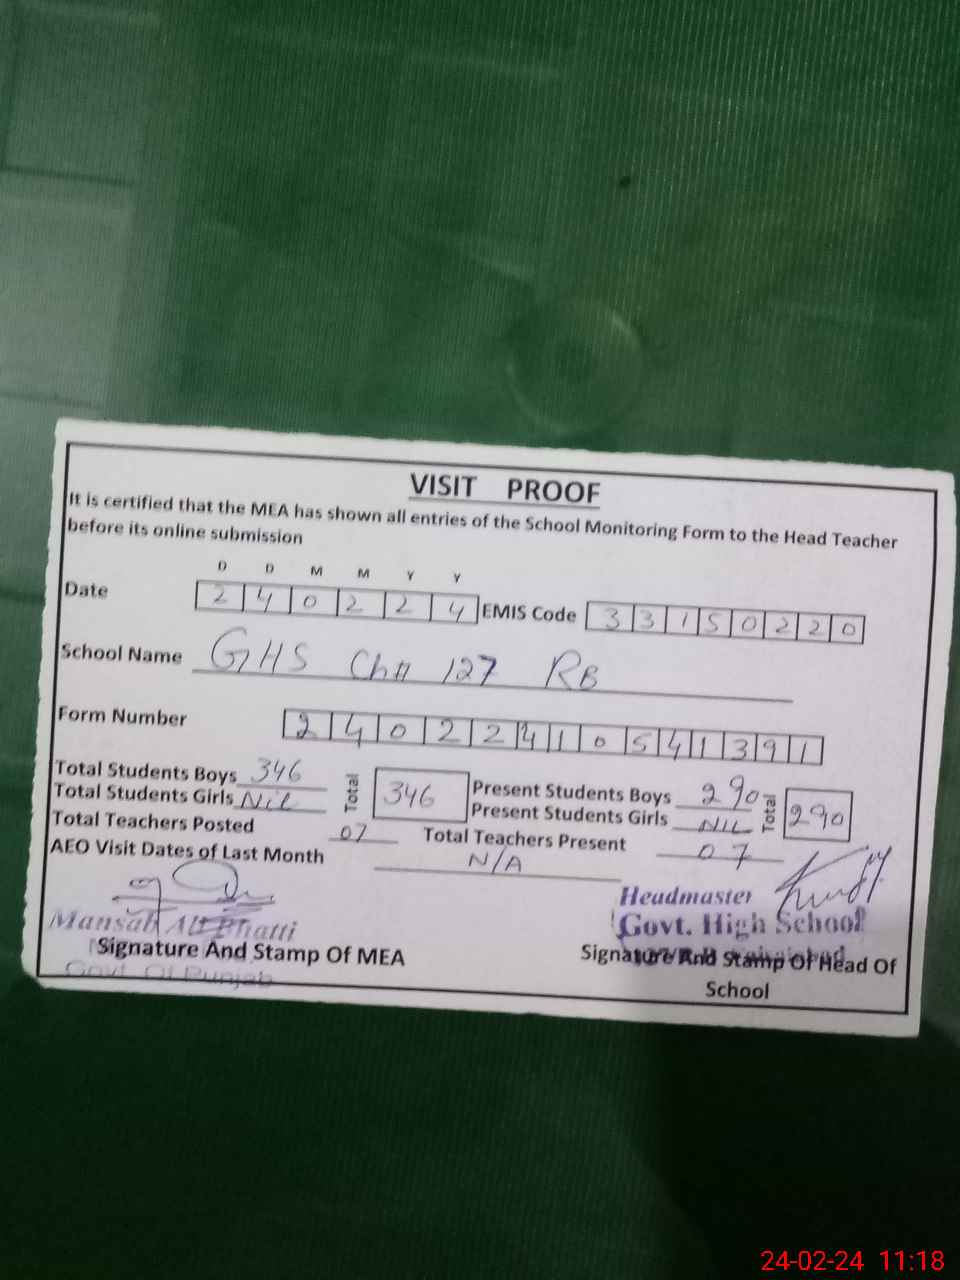 VISIT PROOF
It is certified that the MEA has shown all entries of the School Monitoring Form to the Head Teacher
before its online submission
D D M M Y Y
Date 2 4 0 2 2 4 EMIS Code 3 3 1 5 0 2 2 0
School Name GHS Ch# 127 RB
Form Number 2 4 0 2 2 4 1 0 5 4 1 3 9 1
Total Students Boys 346 Total 346 Present Students Boys 290 Total 290
Total Students Girls Nil Present Students Girls NIL
Total Teachers Posted 07 Total Teachers Present 07
AEO Visit Dates of Last Month N/A
Mansab Ali Bhatti
Signature And Stamp Of MEA
Govt. Of Punjab
Headmaster
Govt. High School
Signature And Stamp Of Head Of
School
24-02-24 11:18